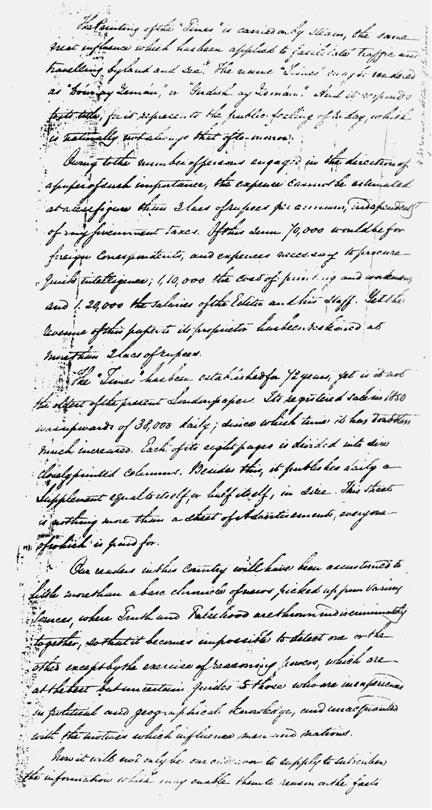 The Printing of the "Times" is carried on by Steam, the same
great influence which has been applied to facilitate traffic and
travelling by land and Sea. The name "Times" may be rendered
as
title, for it represents the public feeling of to day, which
is naturally not always that of to-morrow.
Owing to the number of persons engaged in the direction of
a paper of such importance, the expense cannot be estimated
at a less figure than 2 lacs of rupees per annum, independent
of any government taxes. Of this sum 70,000 would be for
foreign Correspondents, and expenses necessary to procure
quick intelligence; 1,10,000 the cost of printing and workmen,
and 1.20,000 the salaries of the Editor and his Staff. Yet the
revenue of this paper to its proprietor has been reckoned at
more than 2 lacs of rupees.
The "Times" has been established for 72 years, yet is it not
the oldest of the present London papers. Its registered sale in 1850
was upwards of 38,000 daily; since which time it has doubtless
much increased. Each of its eight pages is divided into six
closely printed columns. Besides this, it publishes daily a
Supplement equal to itself, or half itself, in size. This Sheet
is nothing more than a sheet of Advertisements, every one
of which is paid for.
Our readers in this Country will have been accustomed to
little more than a bare chronicle of news, picked up from various
sources, where Truth and Falsehood are thrown indiscriminately
together, so that it becomes impossible to detect one or the
other except by the exercise of reasoning powers, which are
at the best but uncertain guides to those who are inexperienced
in political and geographical knowledge, and unacquainted
with the motives which influence men and nations.
Now it will not only be our endeavor to supply to subscribers
the information which may enable them to reason on the facts